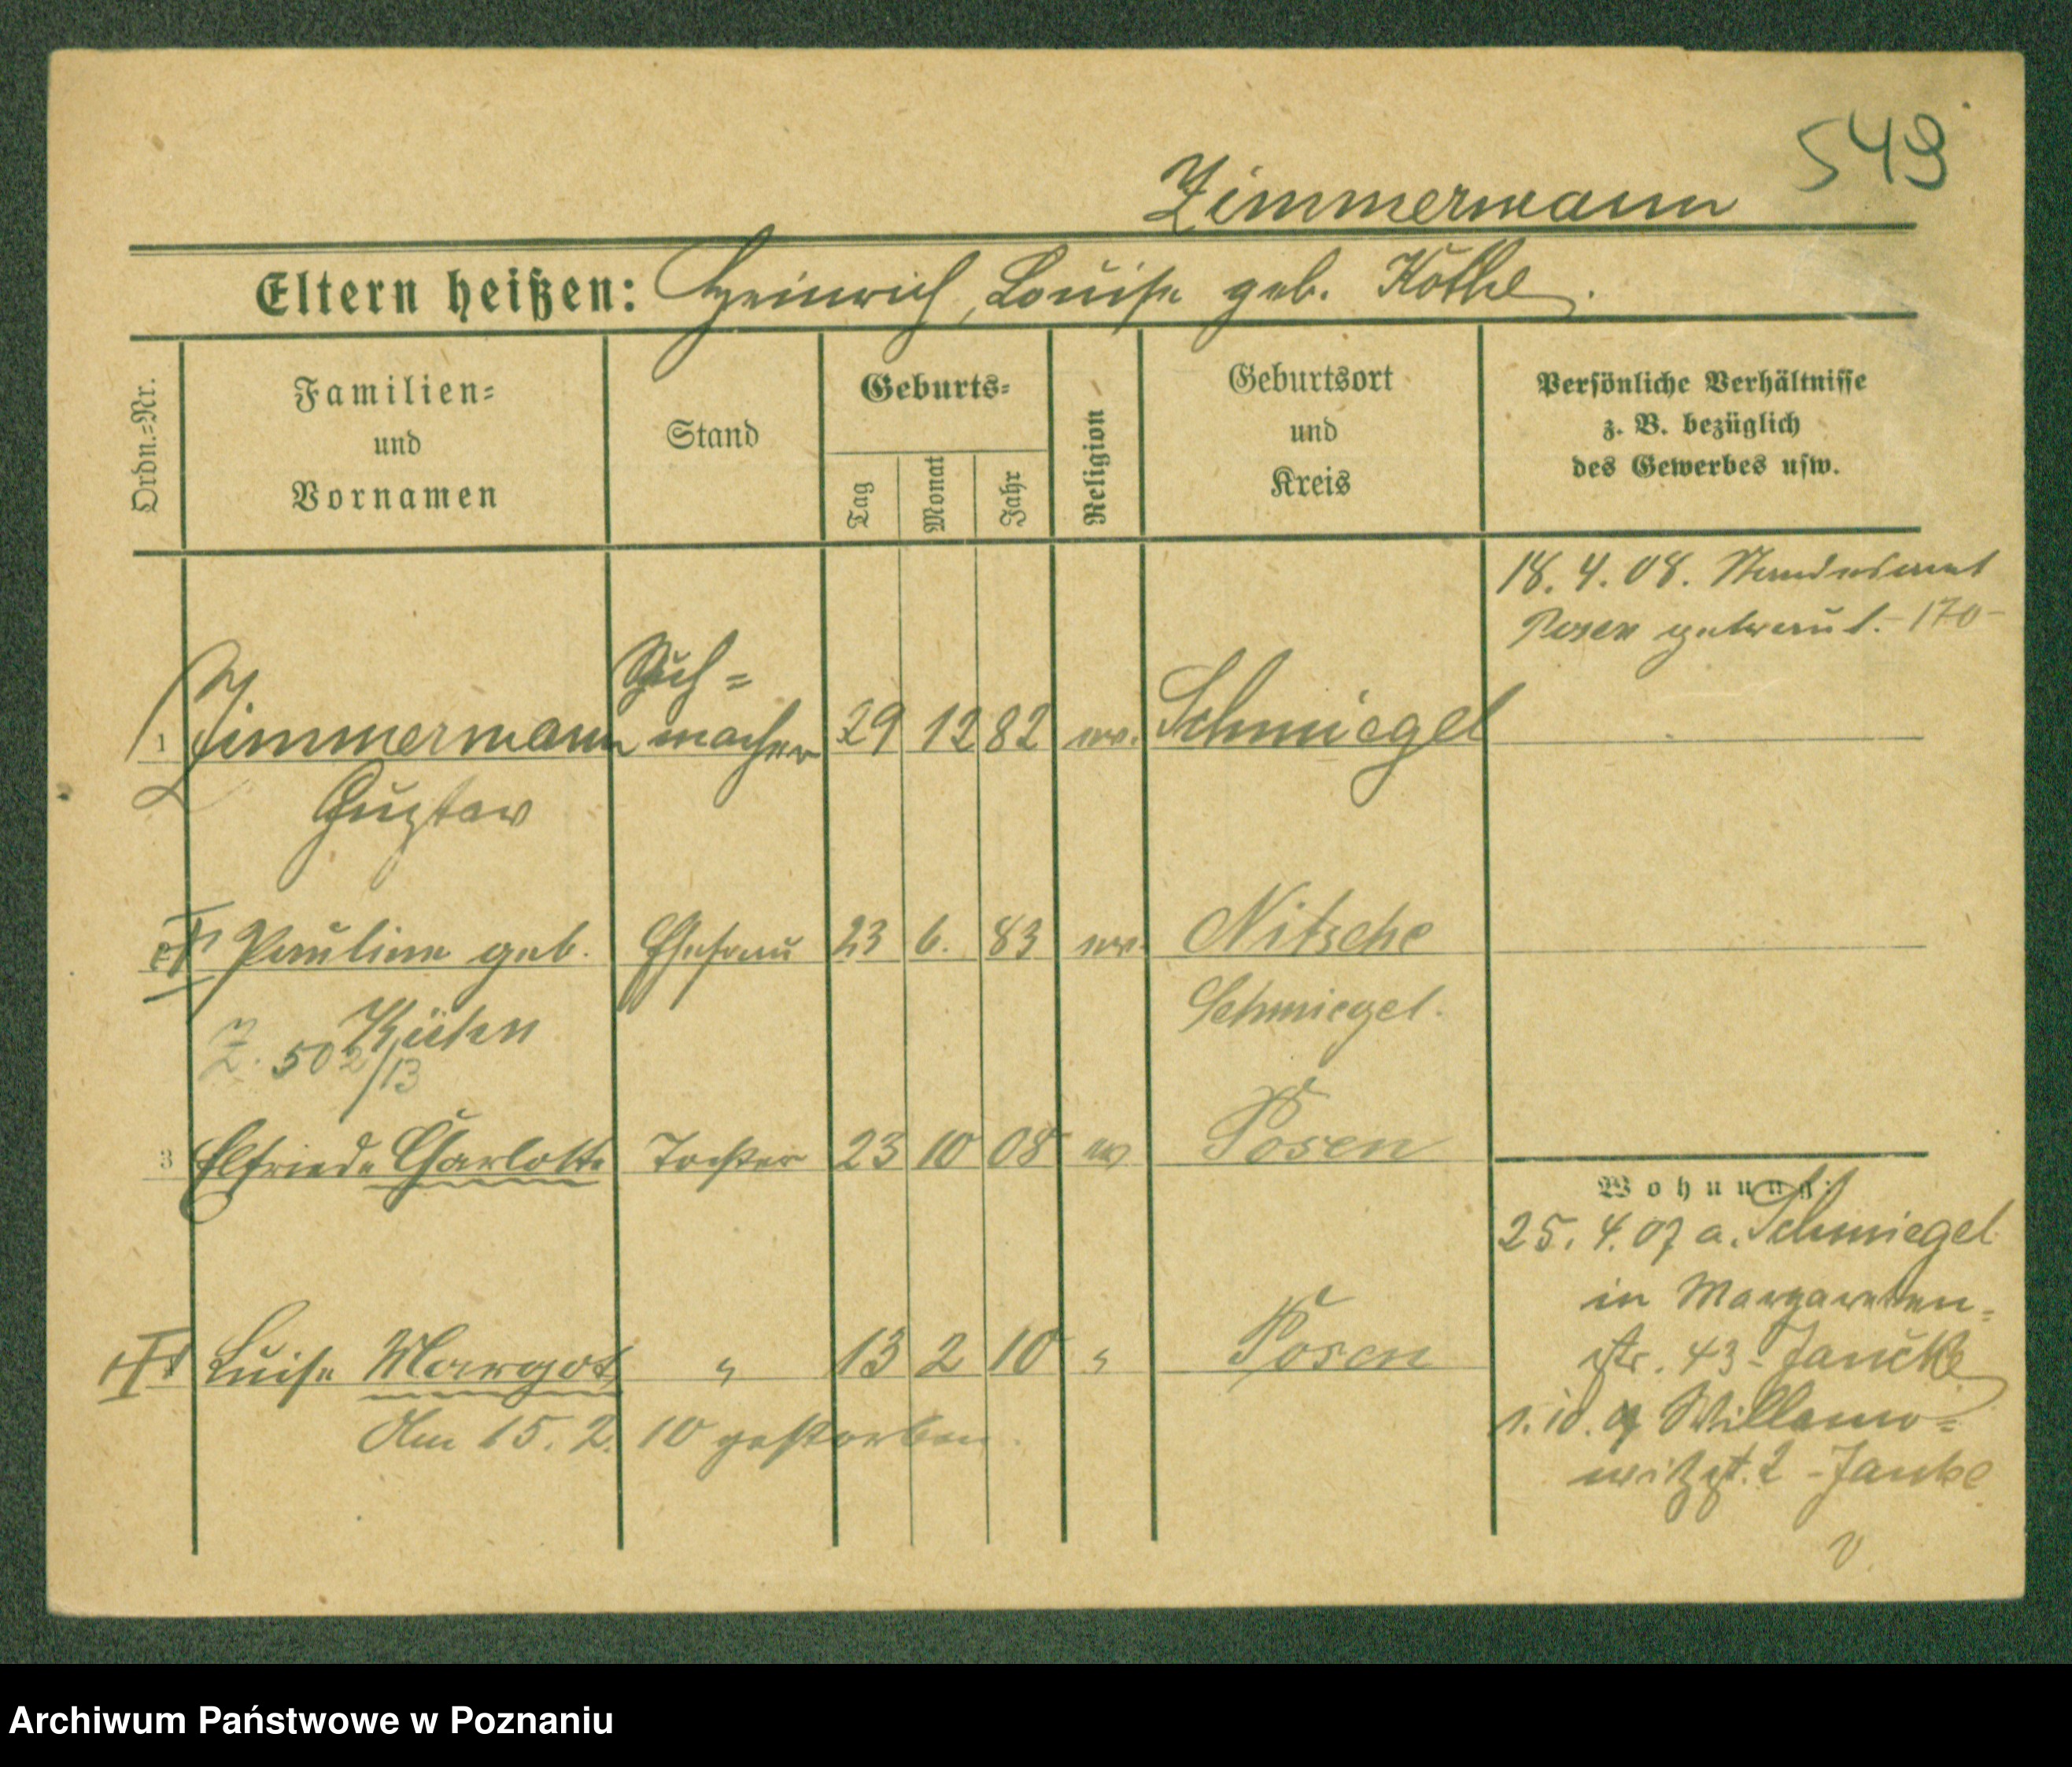 549
Zimmermann
Eltern heißen: Heinrich, Louise geb. Kothe.
Ordn.=Nr.
Familien=
und
Vornamen
Stand
Geburts=
Tag
Monat
Jahr
Religion
Geburtsort
und
Kreis
Persönliche Verhältnisse
z. B. bezüglich
des Gewerbes usw.
18. 4. 08. Standesamt
Posen getraut. - 170 -
1 Zimmermann macher 29 12 82 ev. Schmiegel
Gustav
Pauline geb. Ehefrau 23 6. 83 ev. Nitsche
Kühn Schmiegel.
Z. 502/13
3 Elfriede Charlotte Tochter 23 10 08 ev Posen
Wohnung:
25. 4. 07 a. Schmiegel
in Margareten=
str. 43 - Jancke
1. 10. 07 Willamo=
witzst. 2 - Janke
Luise Margot " 13 2 10 " Posen
Am 15. 2. 10 gestorben.
Archiwum Państwowe w Poznaniu